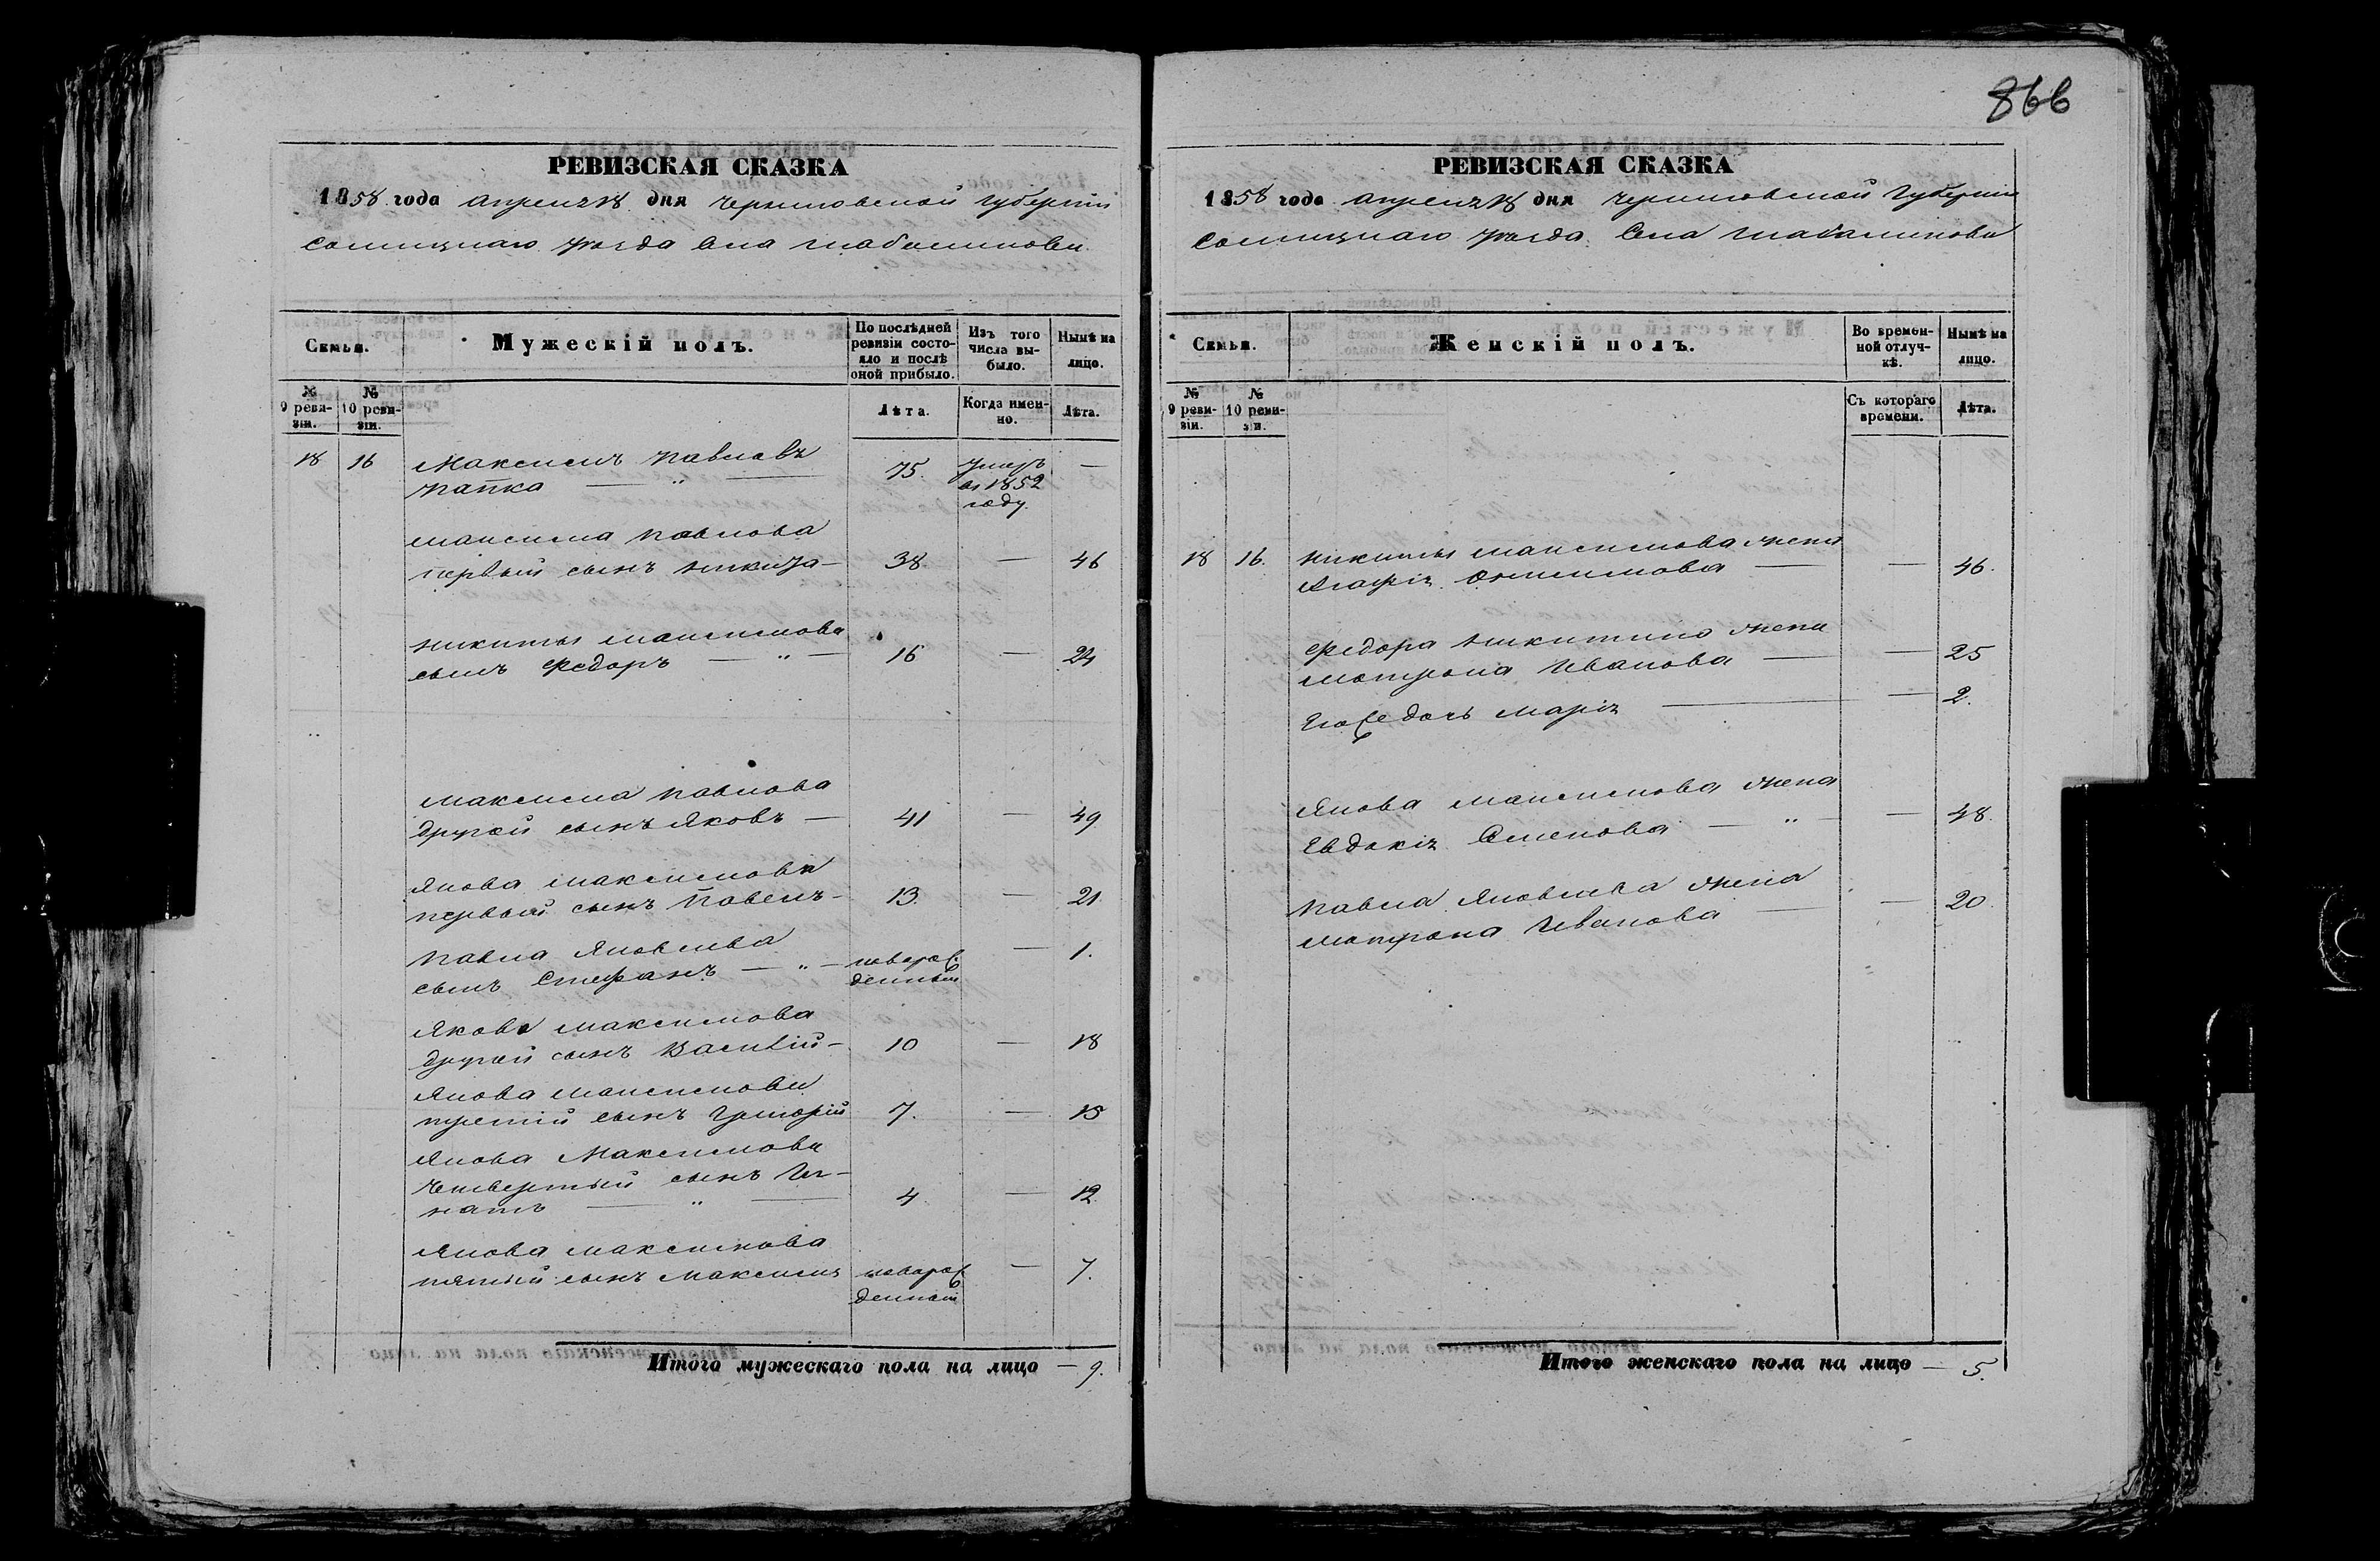 866
РЕВИЗСКАЯ СКАЗКА
1858 года апреля 18 дня Черниговской губернии
Сосницкаго уезда Села Шабалинова
Семьи.
Мужескій полъ.
По послѣдней ревизіи состояло и послѣ оной прибыло.
Изъ того числа выбыло.
Нынѣ на лицо.
№ 9 ревизіи.
№ 10 ревизіи.
Лѣта.
Когда именно.
Лѣта.
18 16 Максимъ Павловъ 75. умеръ —
Папка — „ — въ 1852
году
Максима Павлова
первый сынъ Никита — 38 — 46
Никиты Максимова
сынъ Федоръ — „ — 16 — 24
Максима Павлова
другой сынъ Яковъ — 41 — 49
Якова Максимова
первый сынъ Павелъ — 13. — 21
Павла Яковлева новорож — 1.
сынъ Стефанъ — „ — денный
Якова Максимова
другой сынъ Василій — 10 — 18
Якова Максимова
третій сынъ Григорій 7. — 15
Якова Максимова
четвертый сынъ Иг-
натъ — „ — 4. — 12
Якова Максимова
пятый сынъ Максимъ новорож — 7.
денный
Итого мужескаго пола на лицо — 9.
РЕВИЗСКАЯ СКАЗКА
1858 года апреля 18 дня Черниговской Губернии
Сосницкаго уезда Села Шабалинова
Семьи.
Женскій полъ.
Во временной отлучкѣ.
Нынѣ на лицо.
№ 9 ревизіи.
№ 10 ревизіи.
Съ котораго времени.
Лѣта.
18 16. Никиты Максимова жена
Агафія Онисимова — — 46.
Федора Никитина жена
Мотрона Иванова — — 25
Его же дочь Марія — — 2.
Якова Максимова жена
Евдокія Семенова — „ — — 48.
Павла Яковлева жена
Мотрона Иванова — — 20.
Итого женскаго пола на лицо — 5.